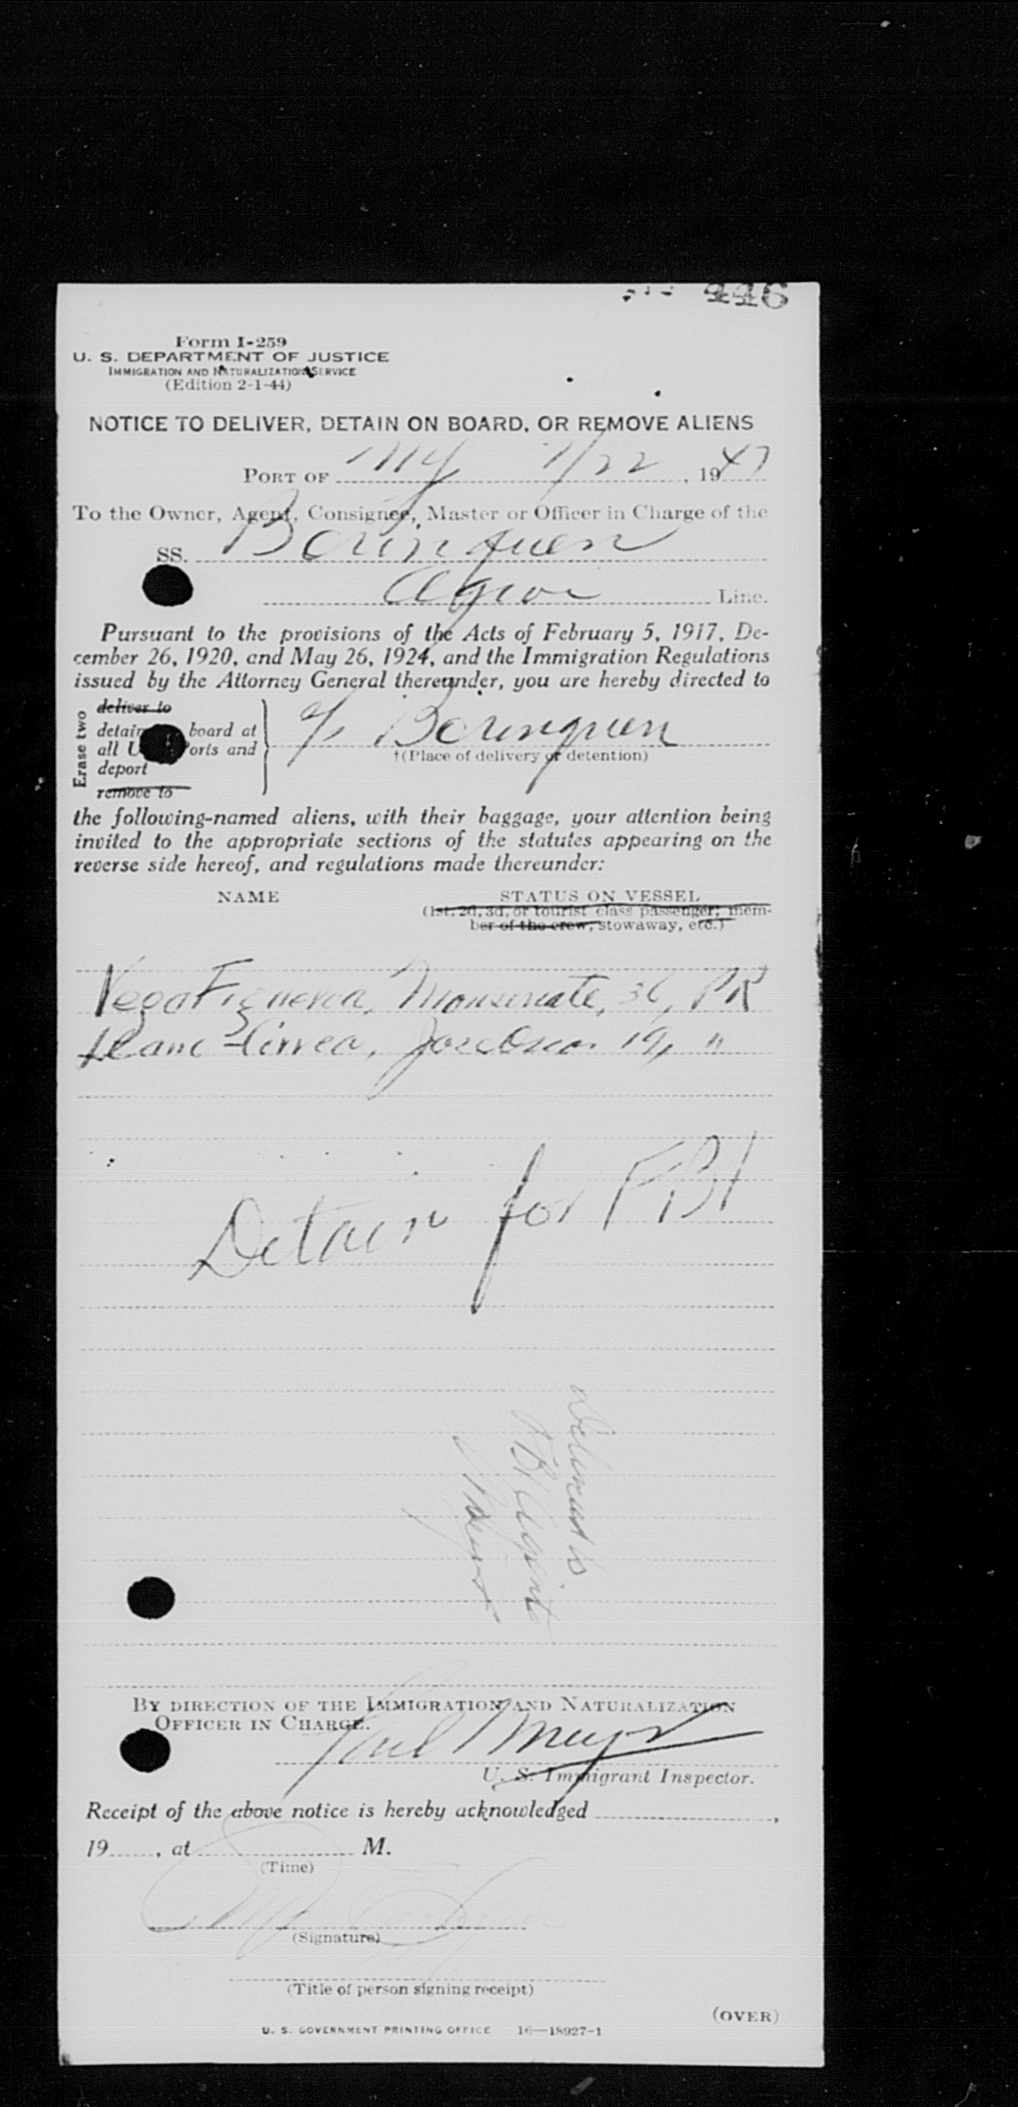 446
Form I-259
U. S. DEPARTMENT OF JUSTICE
IMMIGRATION AND NATURALIZATION SERVICE
(Edition 2-1-44)
NOTICE TO DELIVER, DETAIN ON BOARD, OR REMOVE ALIENS
PORT OF NY 7/22, 1947
To the Owner, Agent, Consignee, Master or Officer in Charge of the
SS. Borinquen
Line.
Pursuant to the provisions of the Acts of February 5, 1917, De-
cember 26, 1920, and May 26, 1924, and the Immigration Regulations
issued by the Attorney General thereunder, you are hereby directed to
Erase two
deliver to
detain board at
all U orts and
deport
remove to
Borinquen
†(Place of delivery or detention)
the following-named aliens, with their baggage, your attention being
invited to the appropriate sections of the statutes appearing on the
reverse side hereof, and regulations made thereunder:
NAME STATUS ON VESSEL
(1st, 2d, 3d, or tourist class passenger; mem-
ber of the crew, stowaway, etc.)
Vega Figueroa, Monserrate, 36, PR
19, "
Detain for FBI
BY DIRECTION OF THE IMMIGRATION AND NATURALIZATION
OFFICER IN CHARGE.
U. S. Immigrant Inspector.
Receipt of the above notice is hereby acknowledged ,
19 , at M.
(Time)
(Signature)
(Title of person signing receipt)
(OVER)
U. S. GOVERNMENT PRINTING OFFICE 16—18927-1